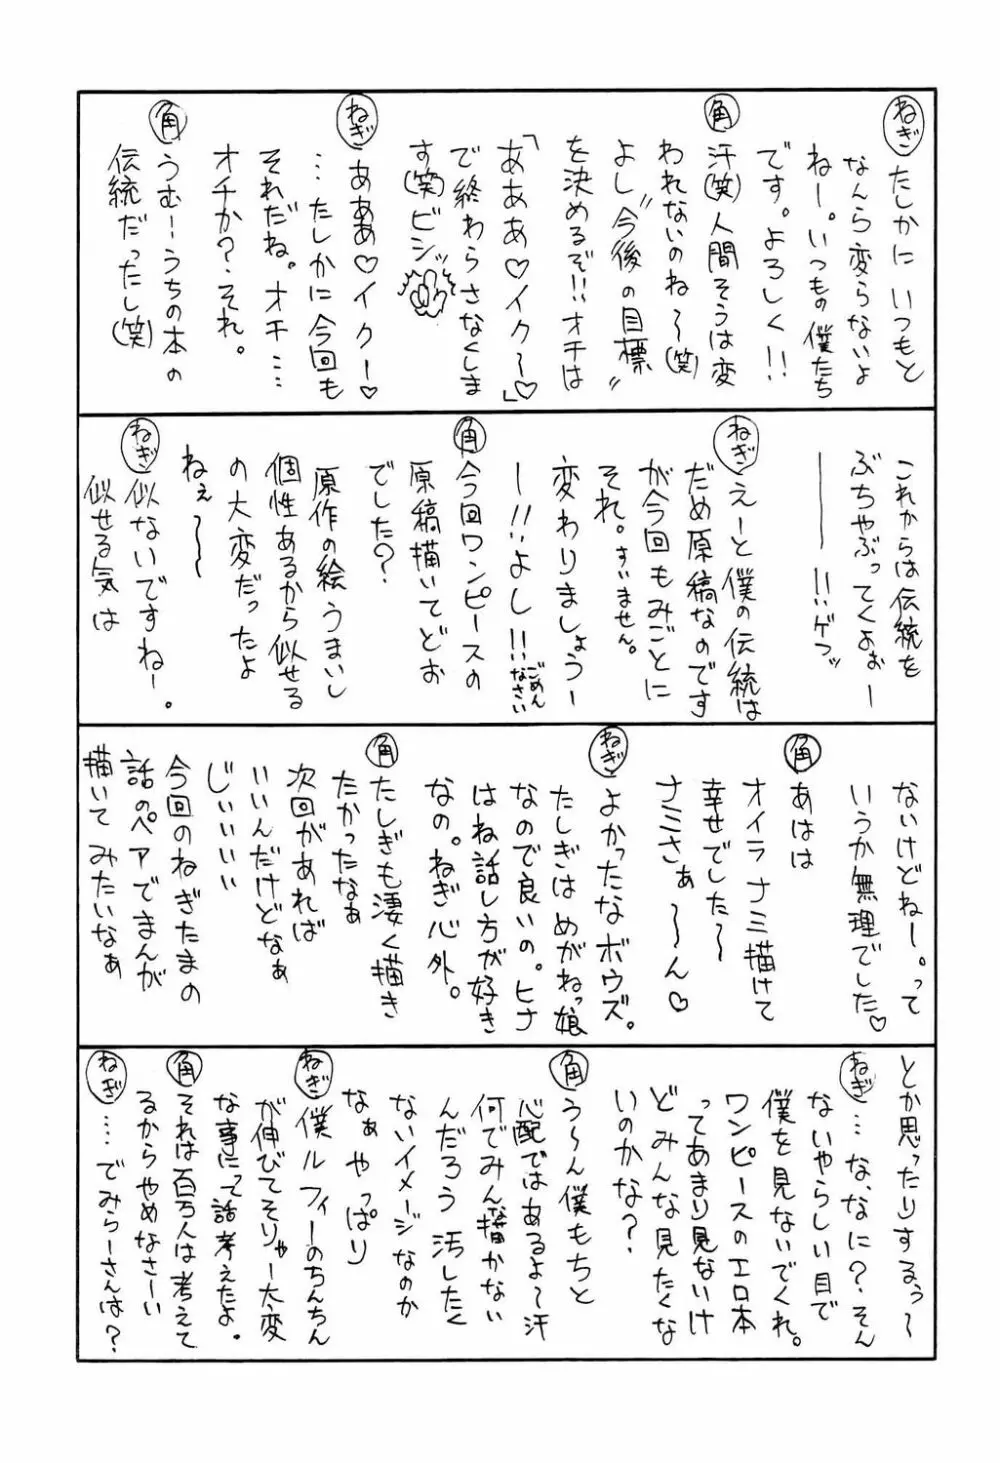 ねぎ たしかにいつもと
なんら変らないよ
ねー。いつもの僕たち
です。よろしく!!
角 汗(笑)人間そうは変
われないのね〜(笑)
よし“今後の目標”
を決めるぞ!!オチは
「あああ♡イク〜」♡
で終わらさなくしま
す(笑)ビシッ
ねぎ あああ♡イクー♡
…たしかに今回も
それだね。オチ…
オチか?それ。
角 うむーうちの本の
伝統だったし(笑)
これからは伝統を
ぶちゃぶってくよぉー
ーーー!!ゲフッ
ねぎ えーと僕の伝統は
だめ原稿なのです
が今回もみごとに
それ。すいません。
変わりましょうー
ー!!よし!!ごめんなさい
角 今回ワンピースの
原稿描いてどお
でした?
原作の絵うまいし
個性あるから似せる
の大変だったよ
ねぇ〜〜
ねぎ 似ないですねー。
似せる気は
ないけどねー。って
いうか無理でした♡
角 あはは
オイラナミ描けて
幸せでした〜
ナミさぁ〜〜ん♡
ねぎ よかったなボウズ。
たしぎはめがねっ娘
なので良いの。ヒナ
はね話し方が好き
なの。ねぎ心外。
角 たしぎも凄く描き
たかったなぁ
次回があれば
いいんだけどなぁ
じぃぃぃぃ
今回のねぎたまの
話のペアでまんが
描いてみたいなぁ
とか思ったりするぅ〜
ねぎ …な、なに?そん
ないやらしい目で
僕を見ないでくれ。
ワンピースのエロ本
ってあまり見ないけ
どみんな見たくな
いのかな?
角 う〜ん僕もちと
心配ではあるよ〜汗
何でみんな描かない
んだろう 汚したく
ないイメージなのか
なぁ やっぱり
ねぎ 僕ルフィーのちんちん
が伸びてそりゃー大変
な事にって話考えたよ。
角 それは百万人は考えて
るからやめなさーい
ねぎ ….でみらーさんは?